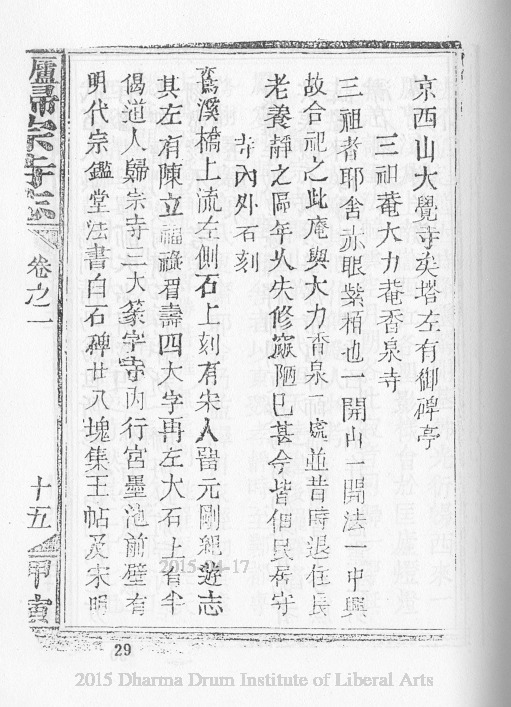 京西山大覺寺矣塔左有御碑亭
三祖菴大力菴香泉寺
三祖者耶舍赤眼紫栢也一開山一開法一中興
故合祀之此庵與大力香泉二處並昔時退住長
老養靜之區年久失修窳陋已甚今皆佃民居守
寺內外石刻
鸞溪橋上流左側石上刻有宋人留元剛親遊志
其左有陳立福祿眉壽四大字再左大石上有半
偈道人歸宗寺三大篆字寺內行宮墨池前壁有
明代宗鑑堂法書白石碑廿八塊集王帖及宋明
廬歸宗寺志
卷之一
十五
甲
29
2015-04-17
2015 Dharma Drum Institute of Liberal Arts